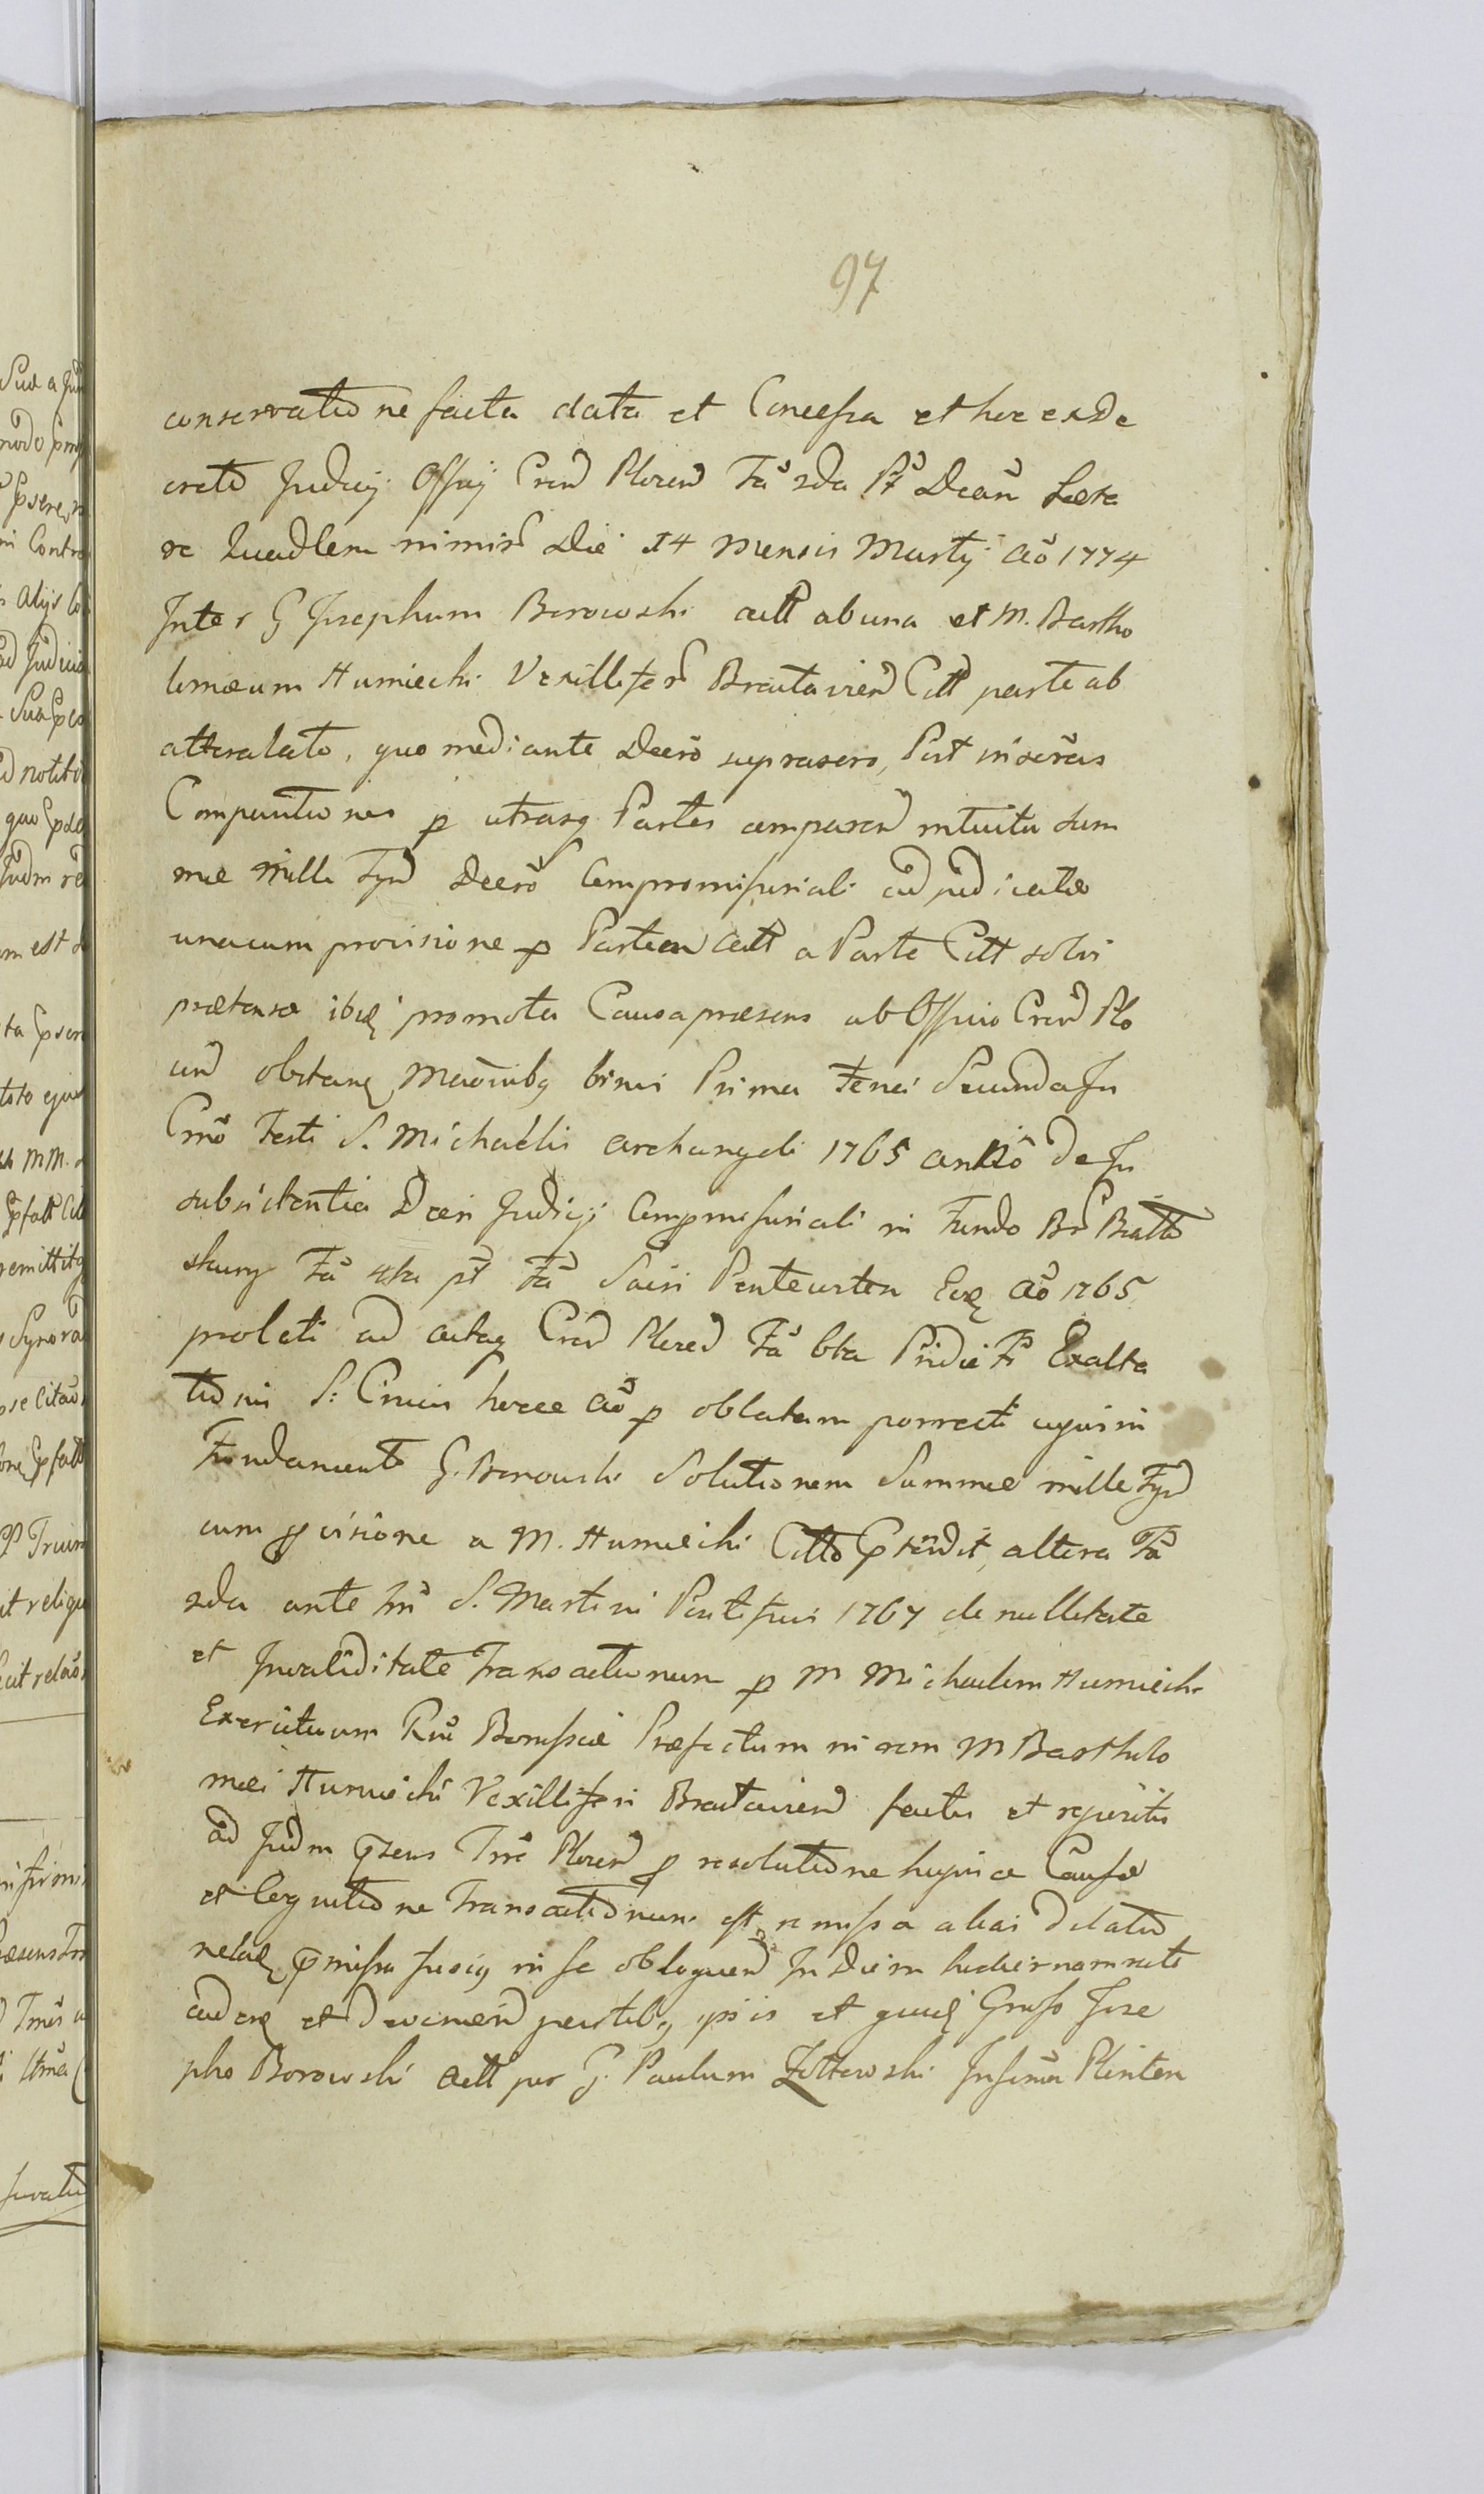 97
conservatione facta data et Concessa et hoc ex De
creto Judicij Offsij Cren̄ Plocen̄ Fã 2da Pt Dcam̄ Læta
re Quadlem nimir̃ Die 14 Mensis Martij Aõ 1774
Inter G Josephum Borowski act̃ ab una et M. Bartho
lomæum Humiecki Vexillifer̃ Braclavien̄ Citt parte ab
altera lato, quo mediante Decrõ suprasero, Post inscrãs
Compartiones p utrasq Partes comparen̄ intuitu Sum
mæ Mille Tyn̄ Decrõ Compromissoriali adjudicatæ
unacum provisione p Partem Act̃ a Parte Citt solvi
prætensæ ibidẽ promota Causa præsens ab Offcio Cren̄ Plo
cen̄ obstanẽ maõnibq binis Prima Fenci Secunda In
Crm̃o Festi S. Michaëlis Archangeli 1765 Annõ De In
subsistentia Decri Judicij Compmissoriali in Fundo Br̃
skung Fã 4ta pt̃ Fã Sacri Pentecosten Eve̜ Aõ 1765
prolati ad actaq Cren̄ Plocen̄ Fã 6ta Pridie Fti Exalta
tionis S: Crucis hocce Aõ p oblatam porrecti cujus in
Fundamento G. Borowski Solutionem Summæ mille Tyn̄
cum pvisione a M. Humiecki Citto Ptendit, altera Fã
2da ante Ftm̃ S. Martini Pontificis 1767 de nullitate
et Invaliditate Transactionum p M Michaelem Humiecki
Exercituum Rm̃ Borussiæ Præfectum in rem M Bartholo
mæi Humiecki Vexilliferi Braclavien̄ factis et repertis
ad Judm pzens Trre Plocen̄ p resolutione hujus ce Causæ
et Cognitione Transactionum est remissa alias dilatio
nelaẽ pmissa fusiq in se obloquen̄ In Diem hodiernam rite
caden̄ et Devenien̄ partibq ipsis et quidẽ Groso Jose
pho Borowski Act̃ per G. Paulum Żółtowski Plenten